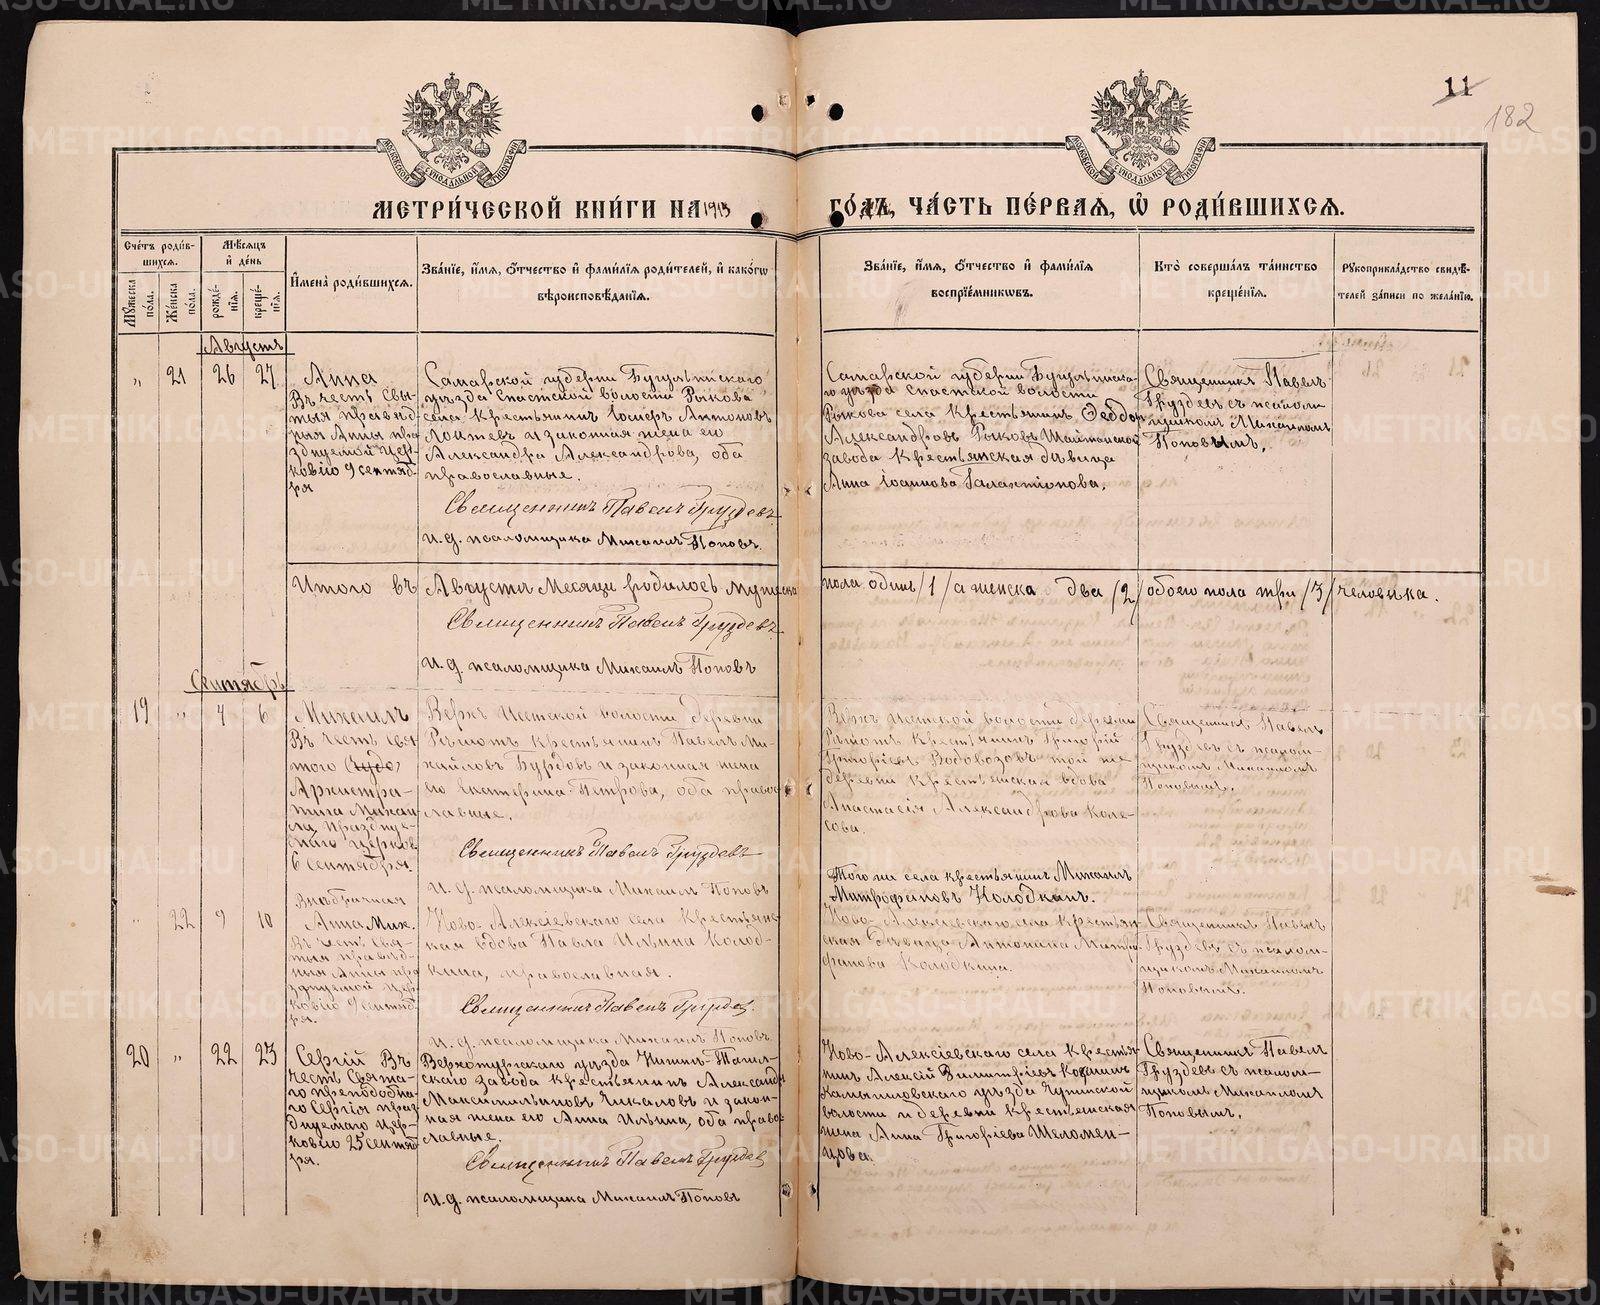 11
182
МОСКОВСКОЙ СѴНОДАЛЬНОЙ ТИПОГРАФІИ
МОСКОВСКОЙ СѴНОДАЛЬНОЙ ТИПОГРАФІИ
МЕТРИ́ЧЕСКОЙ КНИ́ГИ НА 1913
ГО́ДЪ, ЧА́СТЬ ПЕ́РВАЯ, Ѡ҆ РОДИ́ВШИХСЯ.
Сче́тъ роди́в-
шихся.
Мѣ́сяцъ
и҆ де́нь
Мꙋ́жеска
по́ла.
Же́нска
по́ла.
рожде́-
нїя.
креще́-
нїя.
И҆мена̀ роди́вшихся.
Зва́нїе, и҆́мя, ѻ҆́тчество и҆ фами́лїя роди́телей, и҆ како́гѡ
вѣроисповѣ́данїя.
Зва́нїе, и҆́мя, ѻ҆́тчество и҆ фами́лїя
воспрїе́мникѡвъ.
Кто̀ соверша́лъ та́инство
креще́нїя.
Рꙋкоприкла́дство свидѣ́-
телей за́писи по жела́нїю.
Августъ
" 21 26 27
Анна
Въ честь Свя-
тыя правед-
ныя Анны пра
зднуемой Цер-
ковію 9 сентяб-
ря
Самарской губерни Бугульминскаго
уѣзда Спасской волости Рыкова
села крестьянинъ Іосифъ Антоновъ
Лоатевъ и законная жена его
Александра Александрова, оба
православные.
Священникъ Павелъ Груздевъ
И. д. псаломщика Михаилъ Поповъ.
Самарской губерни Бугульминска-
го уѣзда Спасской волости
Рыкова села Крестьянинъ Ѳеодоръ
Александровъ Рыковъ Шайтанскаго
завода Крестьянская дѣвица
Анна Іоаннова Галактіонова.
Священникъ Павелъ
Груздевъ съ псалом-
щикомъ Михаиломъ
Поповымъ.
Итого въ Августѣ Месяцѣ родилось мужеска
пола одинъ /1/ а женска два /2/ обоего пола три /3/ человѣка.
Священникъ Павелъ Груздевъ
И. д. псаломщика Михаилъ Поповъ
Сентябрь
19 " 4 6
Михаилъ
Въ честь свя-
того Чудо,
Архистра-
тига Михаи
ла, празднуе-
маго церков
6 сентября.
Верхъ Исетской волости деревни
Рѣшотъ крестьянинъ Павелъ Ми-
хайловъ Бурдовъ и законная жена
его Екатерина Петрова, оба право-
славные.
Священникъ Павелъ Груздевъ
И. д. псаломщика Михаилъ Поповъ
Верхъ Исетской волости деревни
Рѣшотъ крестьянинъ Григорій
Григоріевъ Водовозовъ той же
деревни крестьянская вдова
Анастасія Александрова Коле-
сова.
Священникъ Павелъ
Груздевъ съ псалом-
щикомъ Михаиломъ
Поповымъ.
" 22 9 10
Внѣбрачная
Анна Мих.
Въ честь Свя-
тыя правед-
ныя Анны пра
зднуемой Цер-
ковію 9 сентяб
ря.
Ново-Алексіевскаго села Крестьянс-
кая вдова Павла Ильина Колод-
кина, православная.
Священникъ Павелъ Груздев.
И. д. псаломщика Михаилъ Поповъ
Того же села крестьянинъ Михаилъ
Митрофановъ Колодкинъ.
Ново-Алексіевскаго села Крестьян-
ская дѣвица Антонина Митро-
фанова Колодкина.
Священникъ Павелъ
Груздевъ съ псалом-
щикомъ Михаиломъ
Поповымъ.
20 " 22 23
Сергій Въ
честь Свята-
го преподобна-
го Сергія праз
днуемаго Цер-
ковію 25 сентяб
ря.
Верхотурскаго уѣзда Нижне-Тагиль-
скаго завода крестьянинъ Александръ
Максимильяновъ Чикаловъ и закон-
ная жена его Анна Ильина, оба право-
славные.
Священникъ Павелъ Груздев
И. д. псаломщика Михаилъ Поповъ
Ново-Алексіевскаго села Крестья-
нинъ Алексій Димитріевъ Копанинъ
Камышловскаго уѣзда Чупинской
волости и деревни крестьянская
жена Анна Григоріева Шеломен-
цова.
Священникъ Павелъ
Груздевъ съ псалом-
щикомъ Михаиломъ
Поповымъ.
METRIKI.GASO-URAL.RU